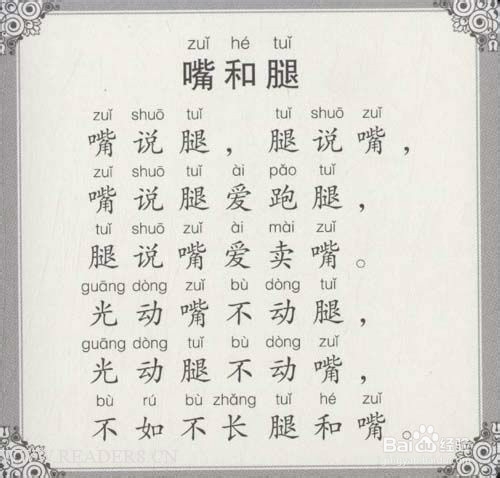 zuǐ hé tuǐ
嘴和腿
zuǐ shuō tuǐ tuǐ shuō zuǐ
嘴说腿，腿说嘴，
zuǐ shuō tuǐ ài pǎo tuǐ
嘴说腿爱跑腿，
tuǐ shuō zuǐ ài mài zuǐ
腿说嘴爱卖嘴。
guāng dòng zuǐ bù dòng tuǐ
光动嘴不动腿，
guāng dòng tuǐ bù dòng zuǐ
光动腿不动嘴，
bù rú bù zhǎng tuǐ hé zuǐ
不如不长腿和嘴。
Baidu经验
WWW.READERS.CN